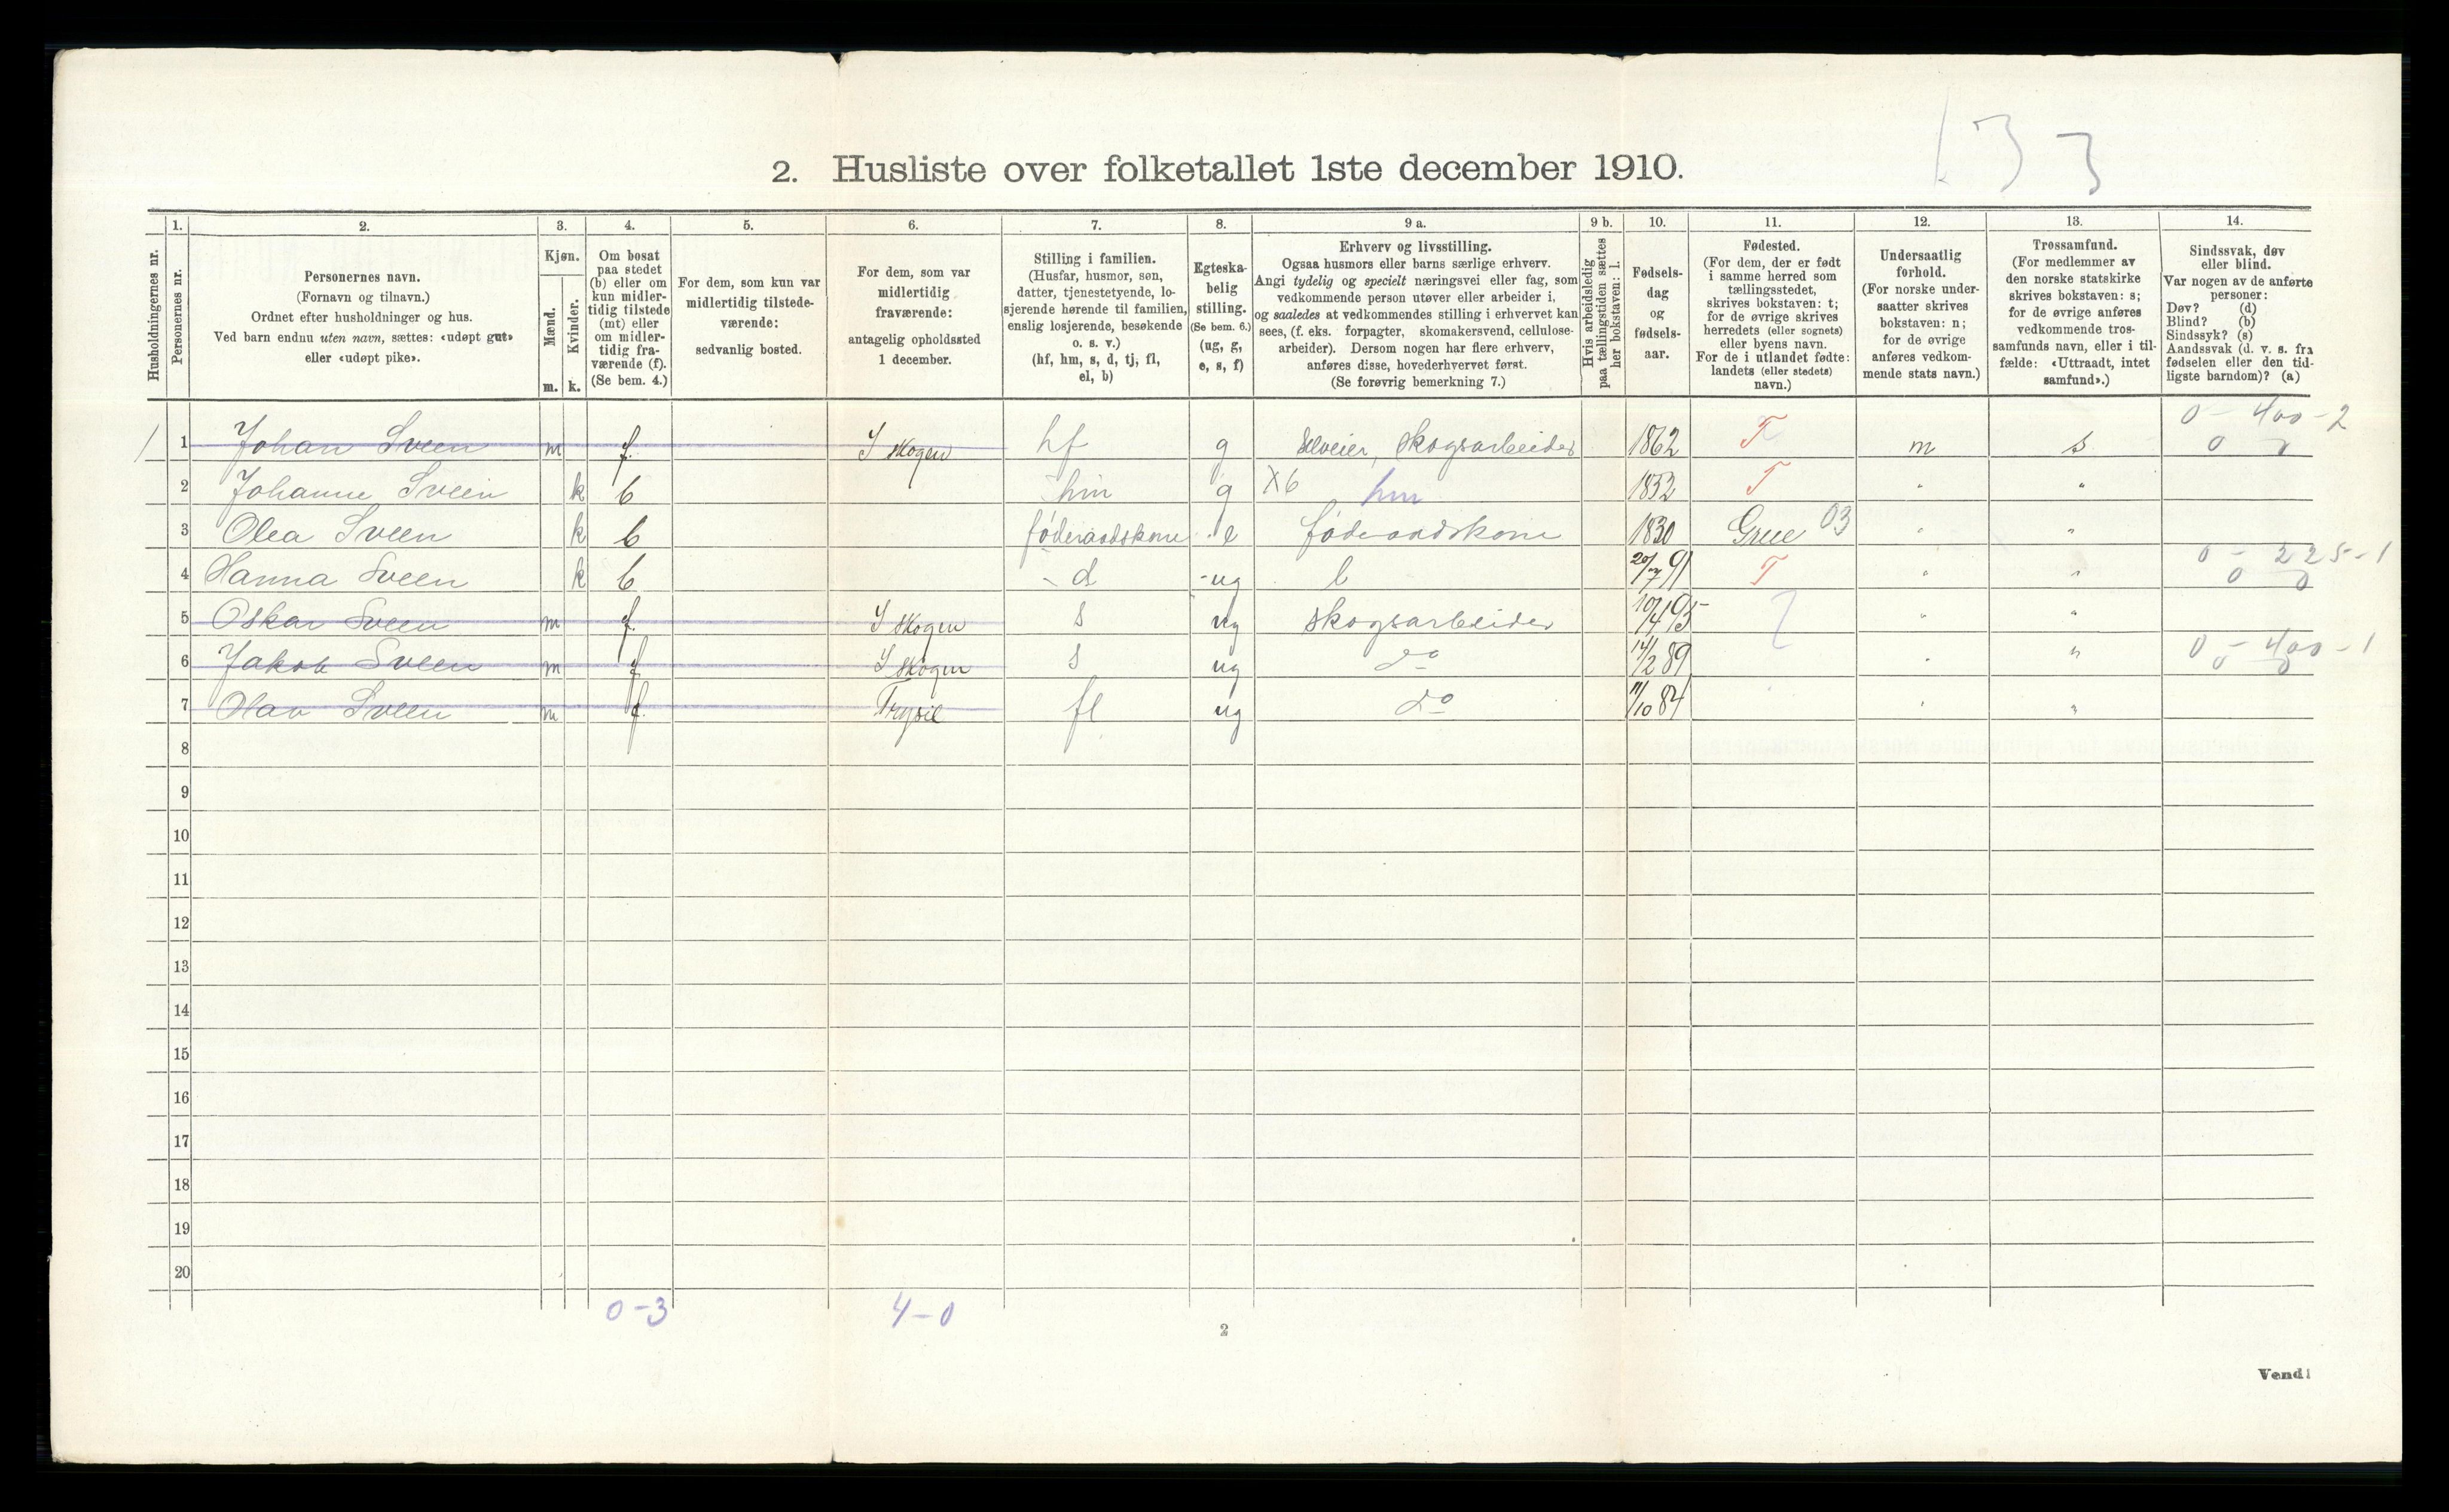 133
2. Husliste over folketallet 1ste december 1910.
Husholdningernes nr.
1. Personernes nr.
2. Personernes navn.
(Fornavn og tilnavn.)
Ordnet efter husholdninger og hus.
Ved barn endnu uten navn, sættes: «udøpt gut»
eller «udøpt pike».
3. Kjøn.
Mænd. m.
Kvinder. k.
4. Om bosat
paa stedet
(b) eller om
kun midler-
tidig tilstede
(mt) eller
om midler-
tidig fra-
værende (f).
(Se bem. 4.)
5. For dem, som kun var
midlertidig tilstede-
værende:
sedvanlig bosted.
6. For dem, som var
midlertidig
fraværende:
antagelig opholdssted
1 december.
7. Stilling i familien.
(Husfar, husmor, søn,
datter, tjenestetyende, lo-
sjerende hørende til familien,
enslig losjerende, besøkende
o. s. v.)
(hf, hm, s, d, tj, fl,
el, b)
8. Egteska-
belig
stilling.
(Se bem. 6.)
(ug, g,
e, s, f)
9 a. Erhverv og livsstilling.
Ogsaa husmors eller barns særlige erhverv.
Angi tydelig og specielt næringsvei eller fag, som
vedkommende person utøver eller arbeider i,
og saaledes at vedkommendes stilling i erhvervet kan
sees, (f. eks. forpagter, skomakersvend, cellulose-
arbeider). Dersom nogen har flere erhverv,
anføres disse, hovederhvervet først.
(Se forøvrig bemerkning 7.)
9 b. Hvis arbeidsledig
paa tællingstiden sættes
her bokstaven: l.
10. Fødsels-
dag
og
fødsels-
aar.
11. Fødested.
(For dem, der er født
i samme herred som
tællingsstedet,
skrives bokstaven: t;
for de øvrige skrives
herredets (eller sognets)
eller byens navn.
For de i utlandet fødte:
landets (eller stedets)
navn.)
12. Undersaatlig
forhold.
(For norske under-
saatter skrives
bokstaven: n;
for de øvrige
anføres vedkom-
mende stats navn.)
13. Trossamfund.
(For medlemmer av
den norske statskirke
skrives bokstaven: s;
for de øvrige anføres
vedkommende tros-
samfunds navn, eller i til-
fælde: «Uttraadt, intet
samfund».)
14. Sindssvak, døv
eller blind.
Var nogen av de anførte
personer:
Døv? (d)
Blind? (b)
Sindssyk? (s)
Aandssvak (d. v. s. fra
fødselen eller den tid-
ligste barndom)? (a)
0 - 400 - 2
1 1 Johan Sveen m f I skogen hf g Selveier, skogsarbeider 1862 T n s 0 0
2 Johanne Sveen k b hm g X6 hm 1852 T " "
3 Olea Sveen k b føderaadskone e føderaadskone 1830 Grue 03 " "
0 - 225 - 1
4 Hanna Sveen k b d ug 20/7 91 T " " 0 0
5 Oskar Sveen m f I skogen s ug skogsarbeider 10/4 95 " "
6 Jakob Sveen m f I skogen s ug do 14/2 89 " " 0 - 400 - 1
0 0
7 Olav Sveen m f Trysil fl ug do 11/10 84 " "
8
9
10
11
12
13
14
15
16
17
18
19
20
0-3 4-0
2
Vend!